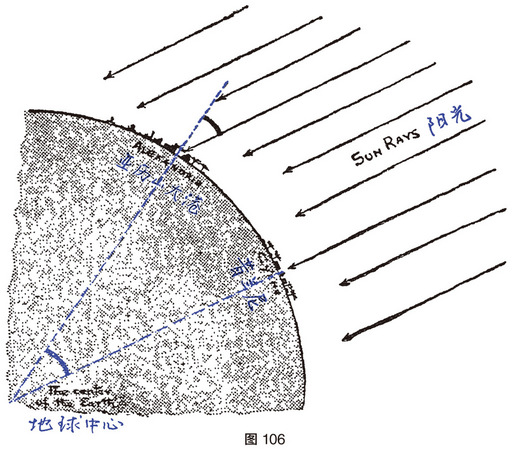 SUN RAYS 阳光
ALEXANDRIA
亚历山大港
昔兰尼
The center
of the Earth
地球中心
图 106